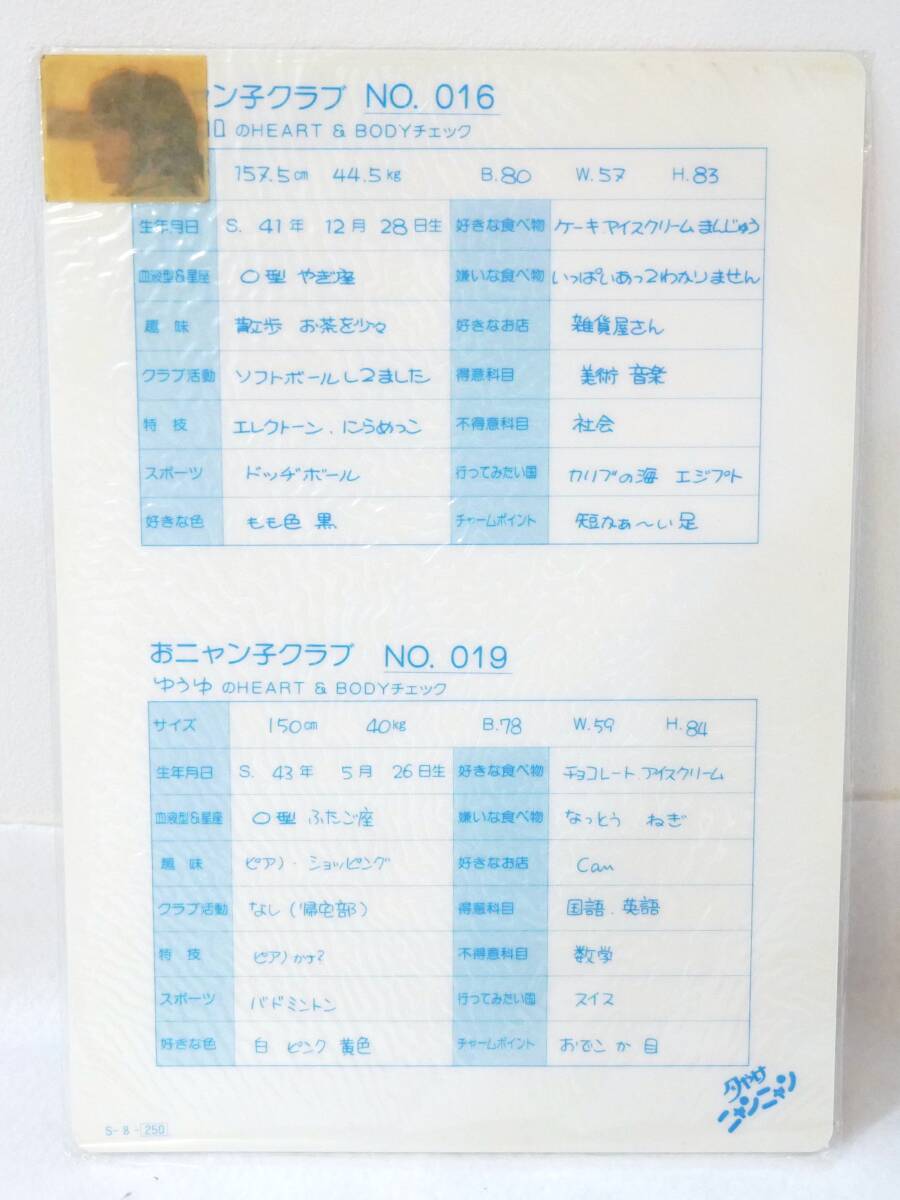 ャン子クラブ NO. 016
のHEART & BODYチェック
157.5cm 44.5kg B.80 W.57 H.83
生年月日 S. 41年 12月 28日生 好きな食べ物 ケーキ アイスクリーム まんじゅう
血液型&星座 O型 やぎ座 嫌いな食べ物 いっぱいあってわかりません
趣味 散歩 お茶を少々 好きなお店 雑貨屋さん
クラブ活動 ソフトボールしてました 得意科目 美術 音楽
特技 エレクトーン、にらめっこ 不得意科目 社会
スポーツ ドッヂボール 行ってみたい国 カリブの海 エジプト
好きな色 もも色 黒 チャームポイント 短なぁ〜い足
おニャン子クラブ NO. 019
ゆうゆ のHEART & BODYチェック
サイズ 150cm 40kg B.78 W.59 H.84
生年月日 S. 43年 5月 26日生 好きな食べ物 チョコレート、アイスクリーム
血液型&星座 O型 ふたご座 嫌いな食べ物 なっとう ねぎ
趣味 ピアノ・ショッピング 好きなお店 Can
クラブ活動 なし(帰宅部) 得意科目 国語、英語
特技 ピアノかな? 不得意科目 数学
スポーツ バドミントン 行ってみたい国 スイス
好きな色 白 ピンク 黄色 チャームポイント おでこか目
夕やけ
ニャンニャン
S-8-250